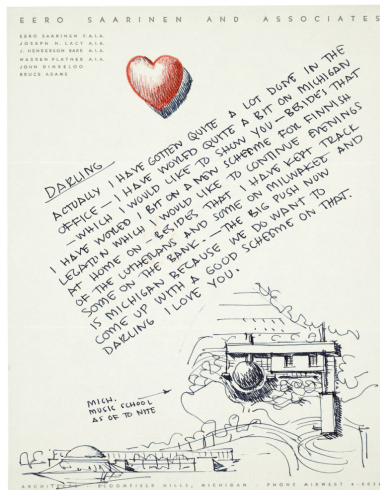 EERO SAARINEN AND ASSOCIATES
EERO SAARINEN F.A.I.A.
JOSEPH N. LACY A.I.A.
J. HENDERSON BARR A.I.A.
WARREN PLATNER A.I.A.
JOHN DINKELOO
BRUCE ADAMS
DARLING —
ACTUALLY I HAVE GOTTEN QUITE A LOT DONE IN THE
OFFICE — I HAVE WORKED QUITE A BIT ON MICHIGAN
— WHICH I WOULD LIKE TO SHOW YOU — BESIDES THAT
I HAVE WORKED A BIT ON A NEW SCHEME FOR FINNISH
LEGATION WHICH I WOULD LIKE TO CONTINUE EVENINGS
AT HOME ON — BESIDES THAT I HAVE KEPT TRACK
OF THE LUTHERANS AND SOME ON MILWAKEE AND
SOME ON THE BANK. — THE BIG PUSH NOW
IS MICHIGAN BECAUSE WE DO WANT TO
COME UP WITH A GOOD SCHEEME ON THAT.
DARLING I LOVE YOU.
MICH.
MUSIC SCHOOL
AS OF TO NITE
ARCHITECTS BLOOMFIELD HILLS, MICHIGAN - PHONE MIDWEST